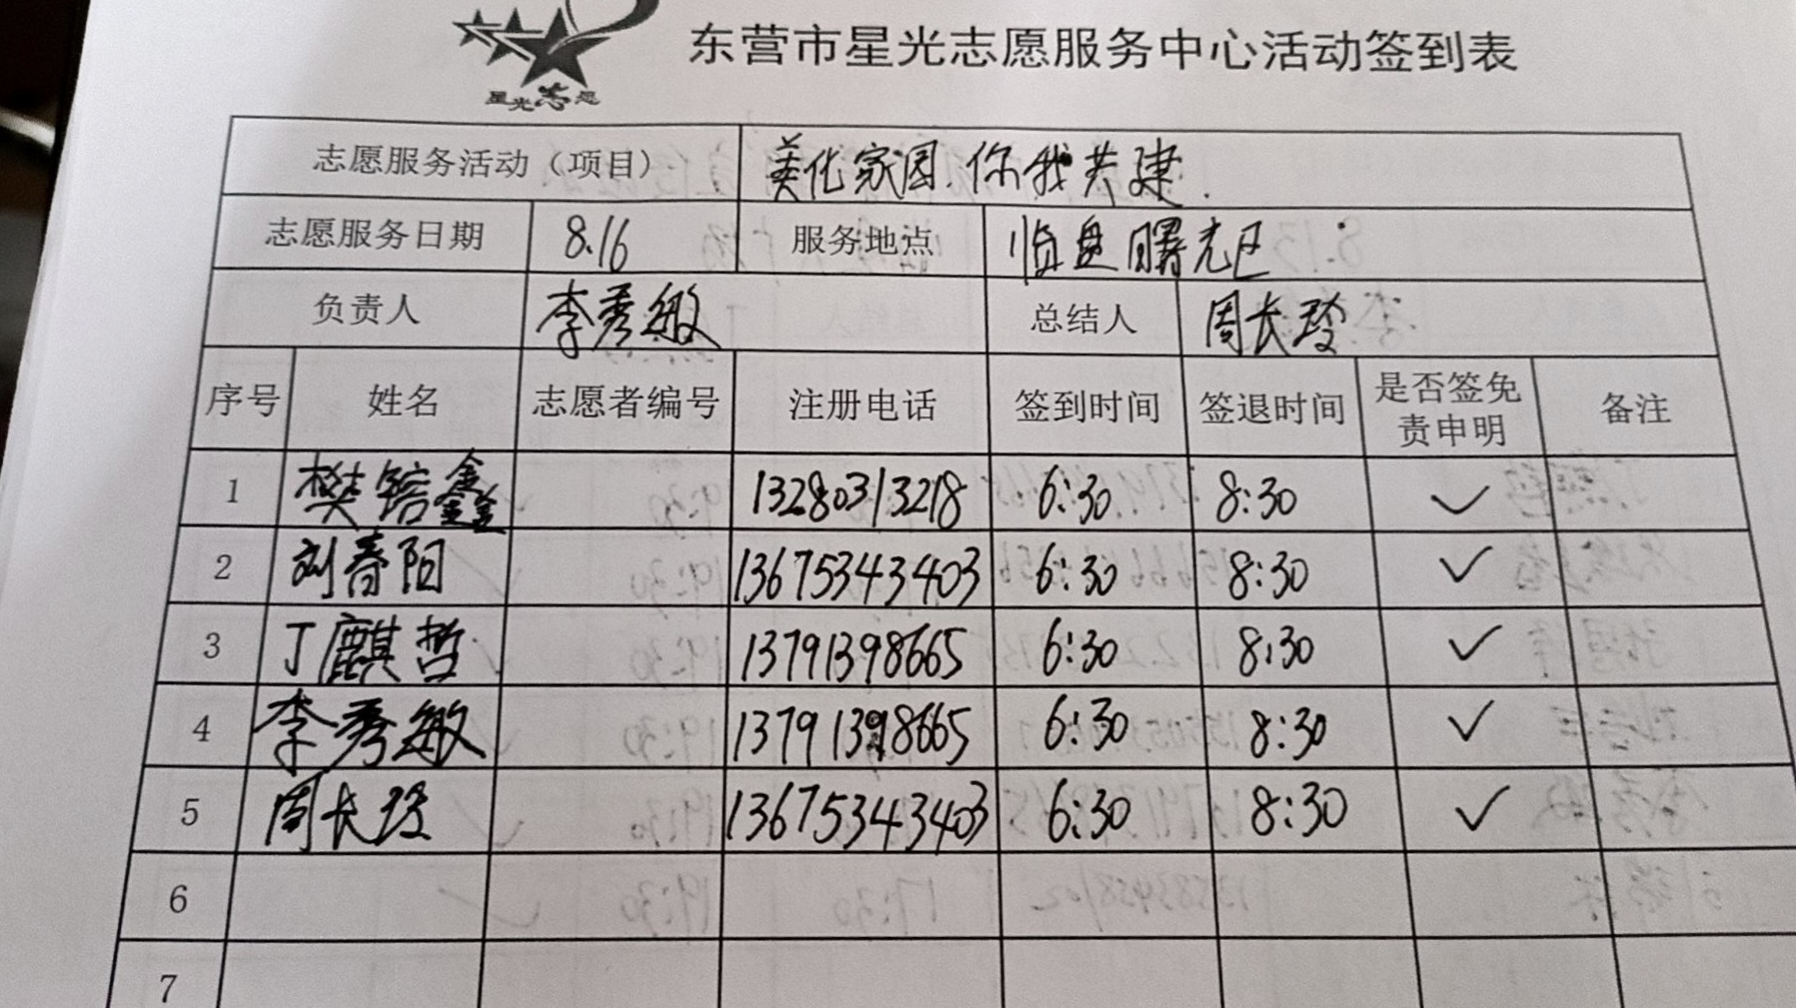 星光志愿
东营市星光志愿服务中心活动签到表
志愿服务活动（项目） 美化家园.你我共建.
志愿服务日期 8.16 服务地点 临盘曙光区
负责人 李秀敏 总结人 周长玲
序号 姓名 志愿者编号 注册电话 签到时间 签退时间 是否签免责申明 备注
1 樊锫鑫 13280313218 6:30 8:30 ✓
2 刘春阳 13675343403 6:30 8:30 ✓
3 丁麒哲 13791398665 6:30 8:30 ✓
4 李秀敏 13791398665 6:30 8:30 ✓
5 周长玲 13675343403 6:30 8:30 ✓
6
7